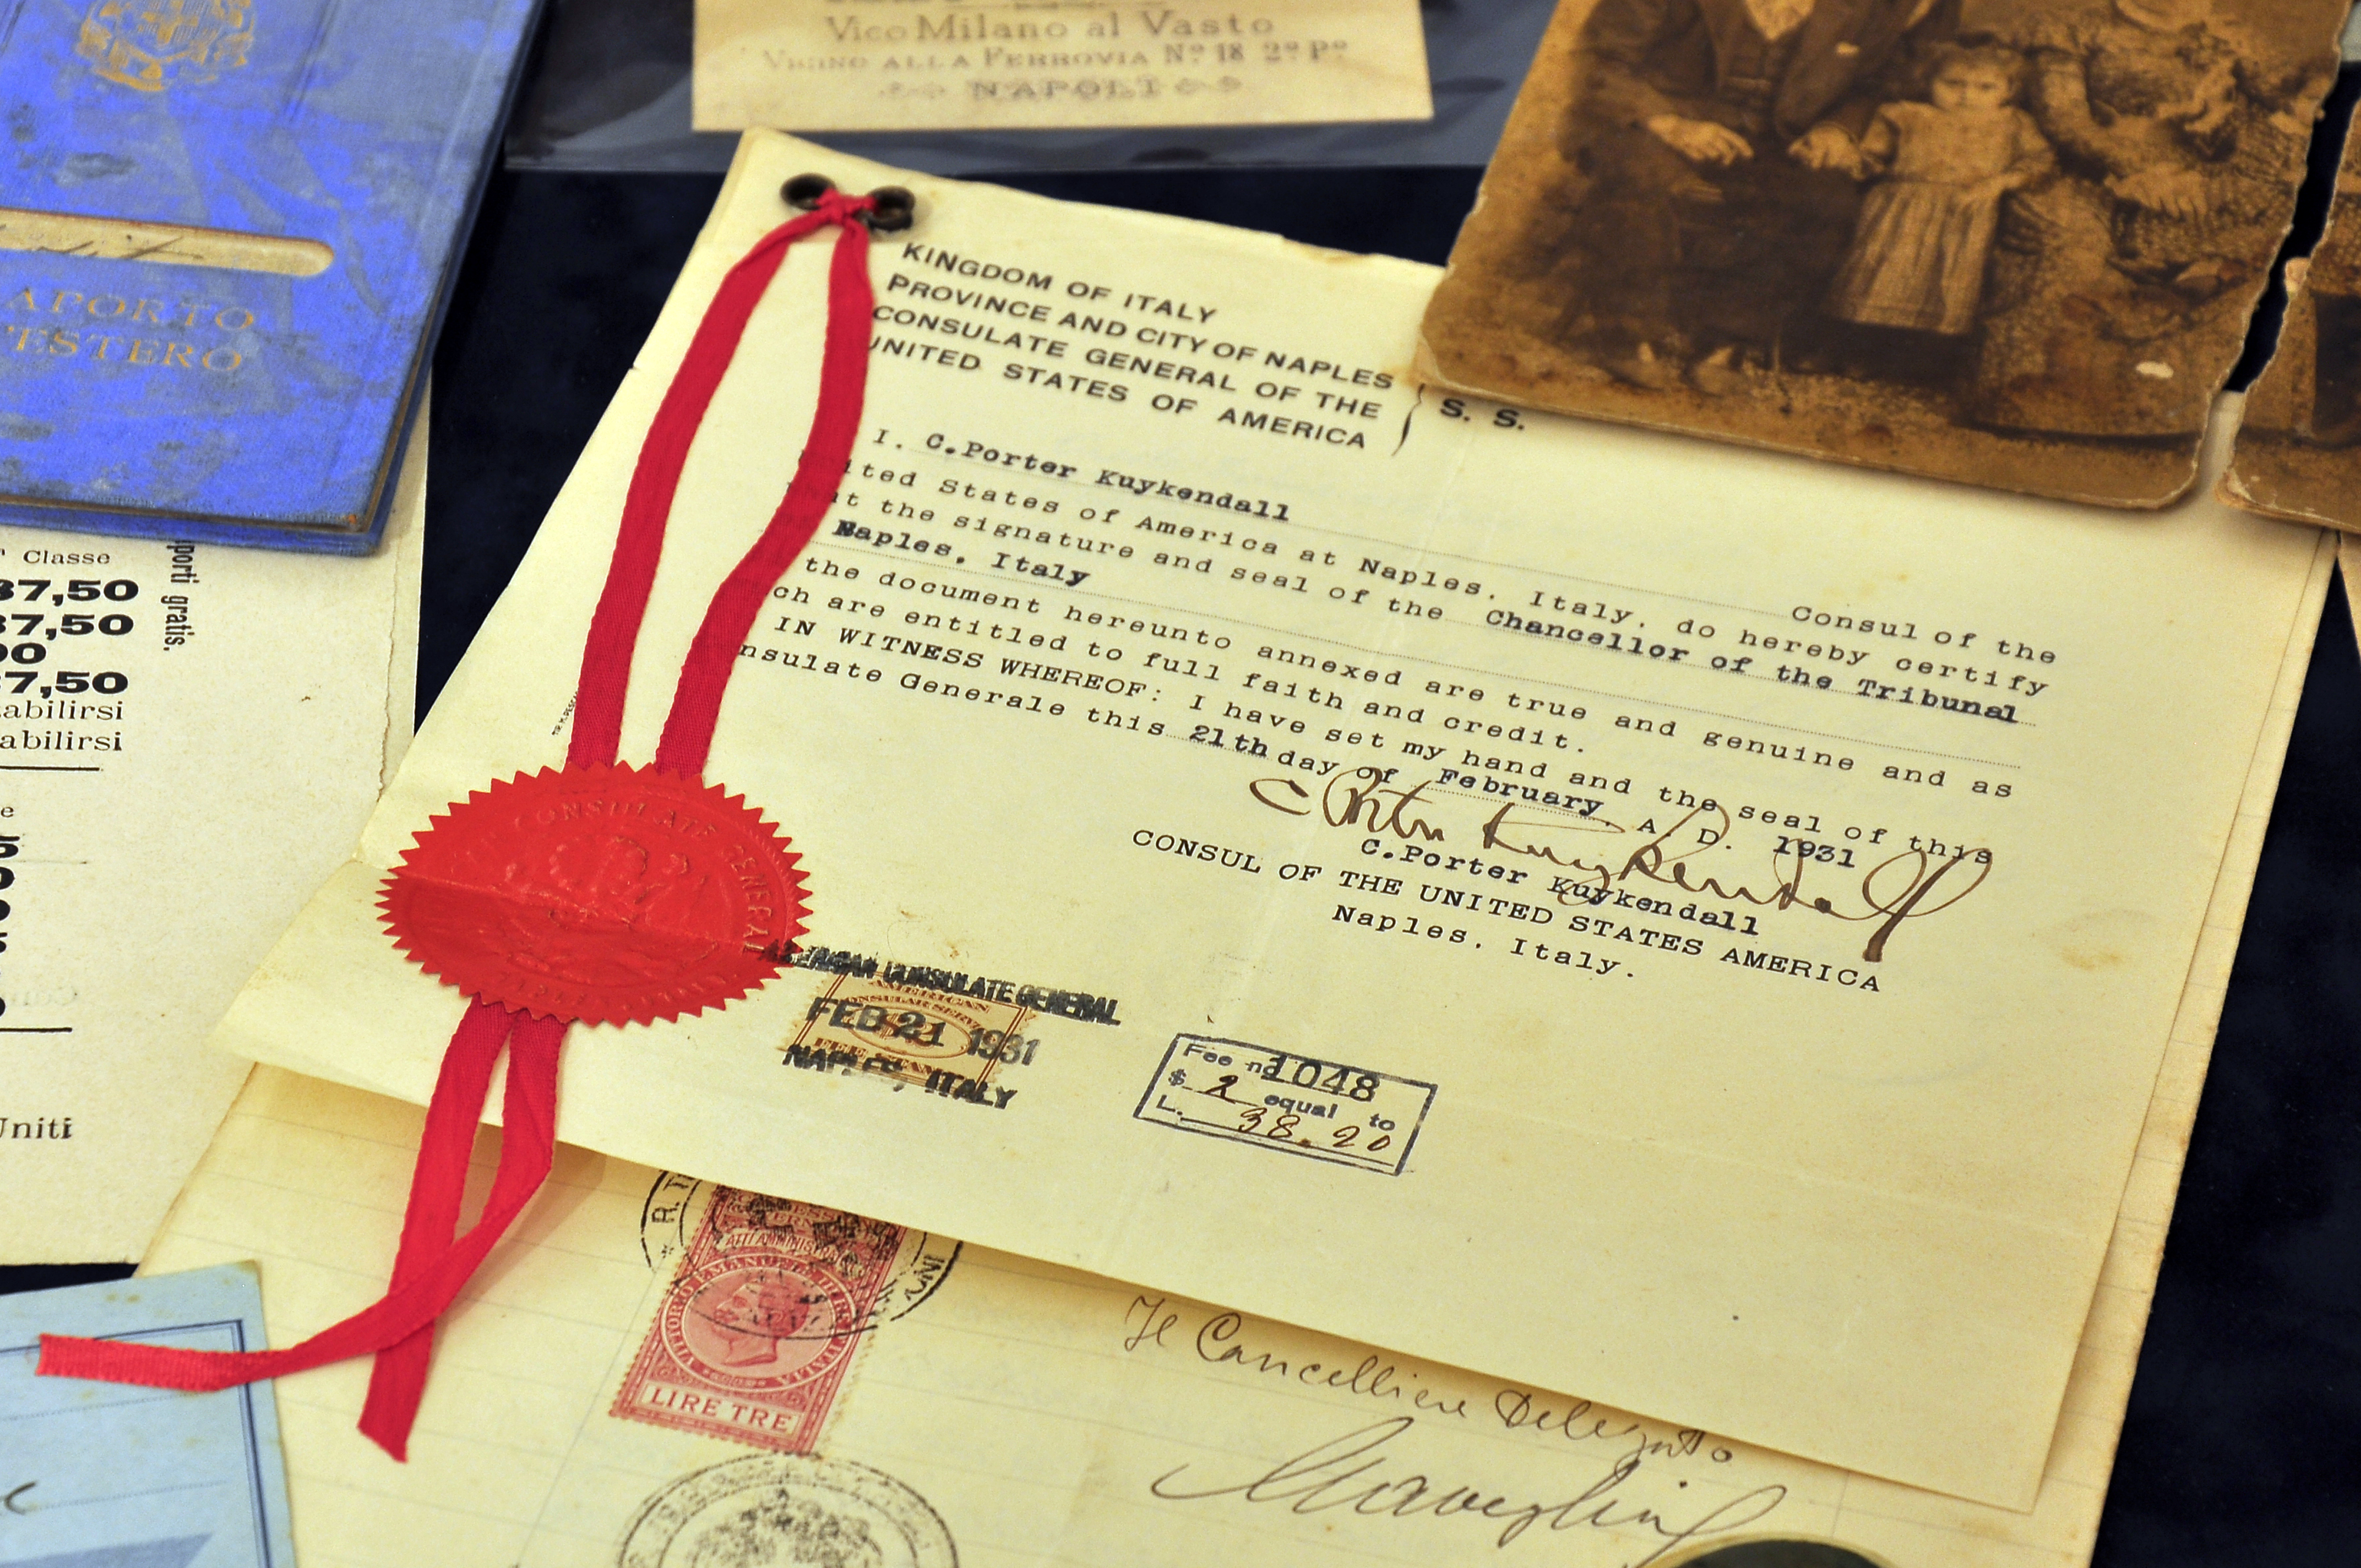 Vico Milano al Vasto
VICINO ALLA FERROVIA Nº 18 2º Pº
NAPOLI
APORTO
'ESTERO
Classe
37,50
37,50
00
7,50
abilirsi
abilirsi
porti gratis.
Uniti
KINGDOM OF ITALY
PROVINCE AND CITY OF NAPLES
CONSULATE GENERAL OF THE
UNITED STATES OF AMERICA
S. S.
I. C.Porter Kuykendall Consul of the
ited States of America at Naples. Italy. do hereby certify
at the signature and seal of the Chancellor of the Tribunal
Naples. Italy
the document hereunto annexed are true and genuine and as
ch are entitled to full faith and credit.
IN WITNESS WHEREOF: I have set my hand and the seal of this
nsulate Generale this 21th day of February A. D. 1931
C Porter Kuykendall
C.Porter Kuykendall
CONSUL OF THE UNITED STATES AMERICA
Naples. Italy.
CONSULATE GENERAL
AMERICAN CONSULATE GENERAL
AMERICAN
FEB 21 1931
NAPLES, ITALY
Fee no 1048
$ 2 equal to
L. 38.20
R. T
ATTI AMMINISTR
VITTORIO EMANUELE III RE D'ITALIA
LIRE TRE
Il Cancelliere Delegato